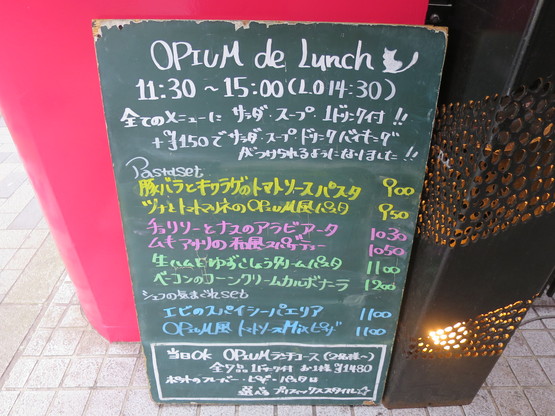 OPIUM de Lunch
11:30 ～ 15:00 (LO 14:30)
全てのメニューに サラダ・スープ・1ドリンク付 !!
+¥150で サラダ・スープ・ドリンクバイキング
がつけられるようになりました !!
Pastaset
豚バラとキクラゲのトマトソースパスタ 900
ツナとトマトのOPIUM風パスタ 950
チョリソーとナスのアラビアータ 1030
ムキアサリの和風スパゲティー 1050
生ハムとゆずこしょうクリームパスタ 1100
ベーコンのコーンクリームカルボナーラ 1200
シェフの気まぐれset
エビのスパイシーパエリア 1100
OPIUM風 トマトソースMixピザ 1100
当日OK OPIUMランチコース (2名様～)
全7品 1ドリンク付 お1人様 ¥1480
ピザ・パスタ
選べる プリフィックススタイル☆